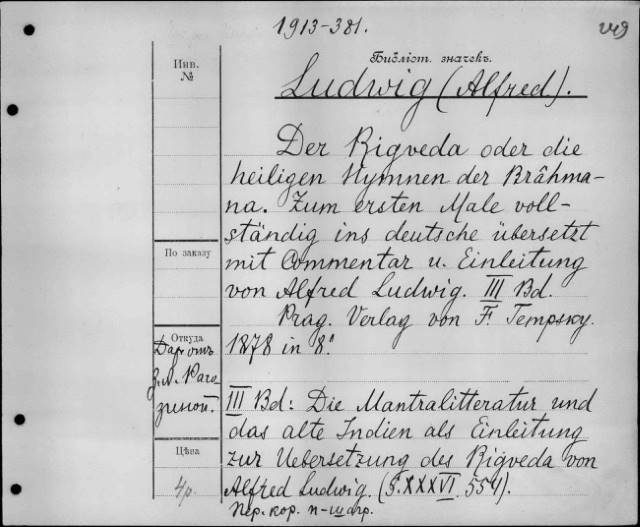 1913-381.
Библіот. значекъ.
Инв.
№
Ludwig (Alfred).
Der Rigveda oder die
heiligen Hymnen der Brâhma-
na. Zum ersten Male voll-
ständig ins deutsche übersetzt
По заказу
mit Commentar u. Einleitung
von Alfred Ludwig. III Bd.
Prag. Verlag von F. Tempsky.
Откуда
1878 in 8.º
Дар отъ
З.А. Раго
зиной.
III Bd: Die Mantralitteratur und
das alte Indien als Einleitung
Цѣна
zur Uebersetzung des Rigveda von
4р.
Alfred Ludwig. (S. XXXVI, 554).
Пер. кор. п-ш агр.